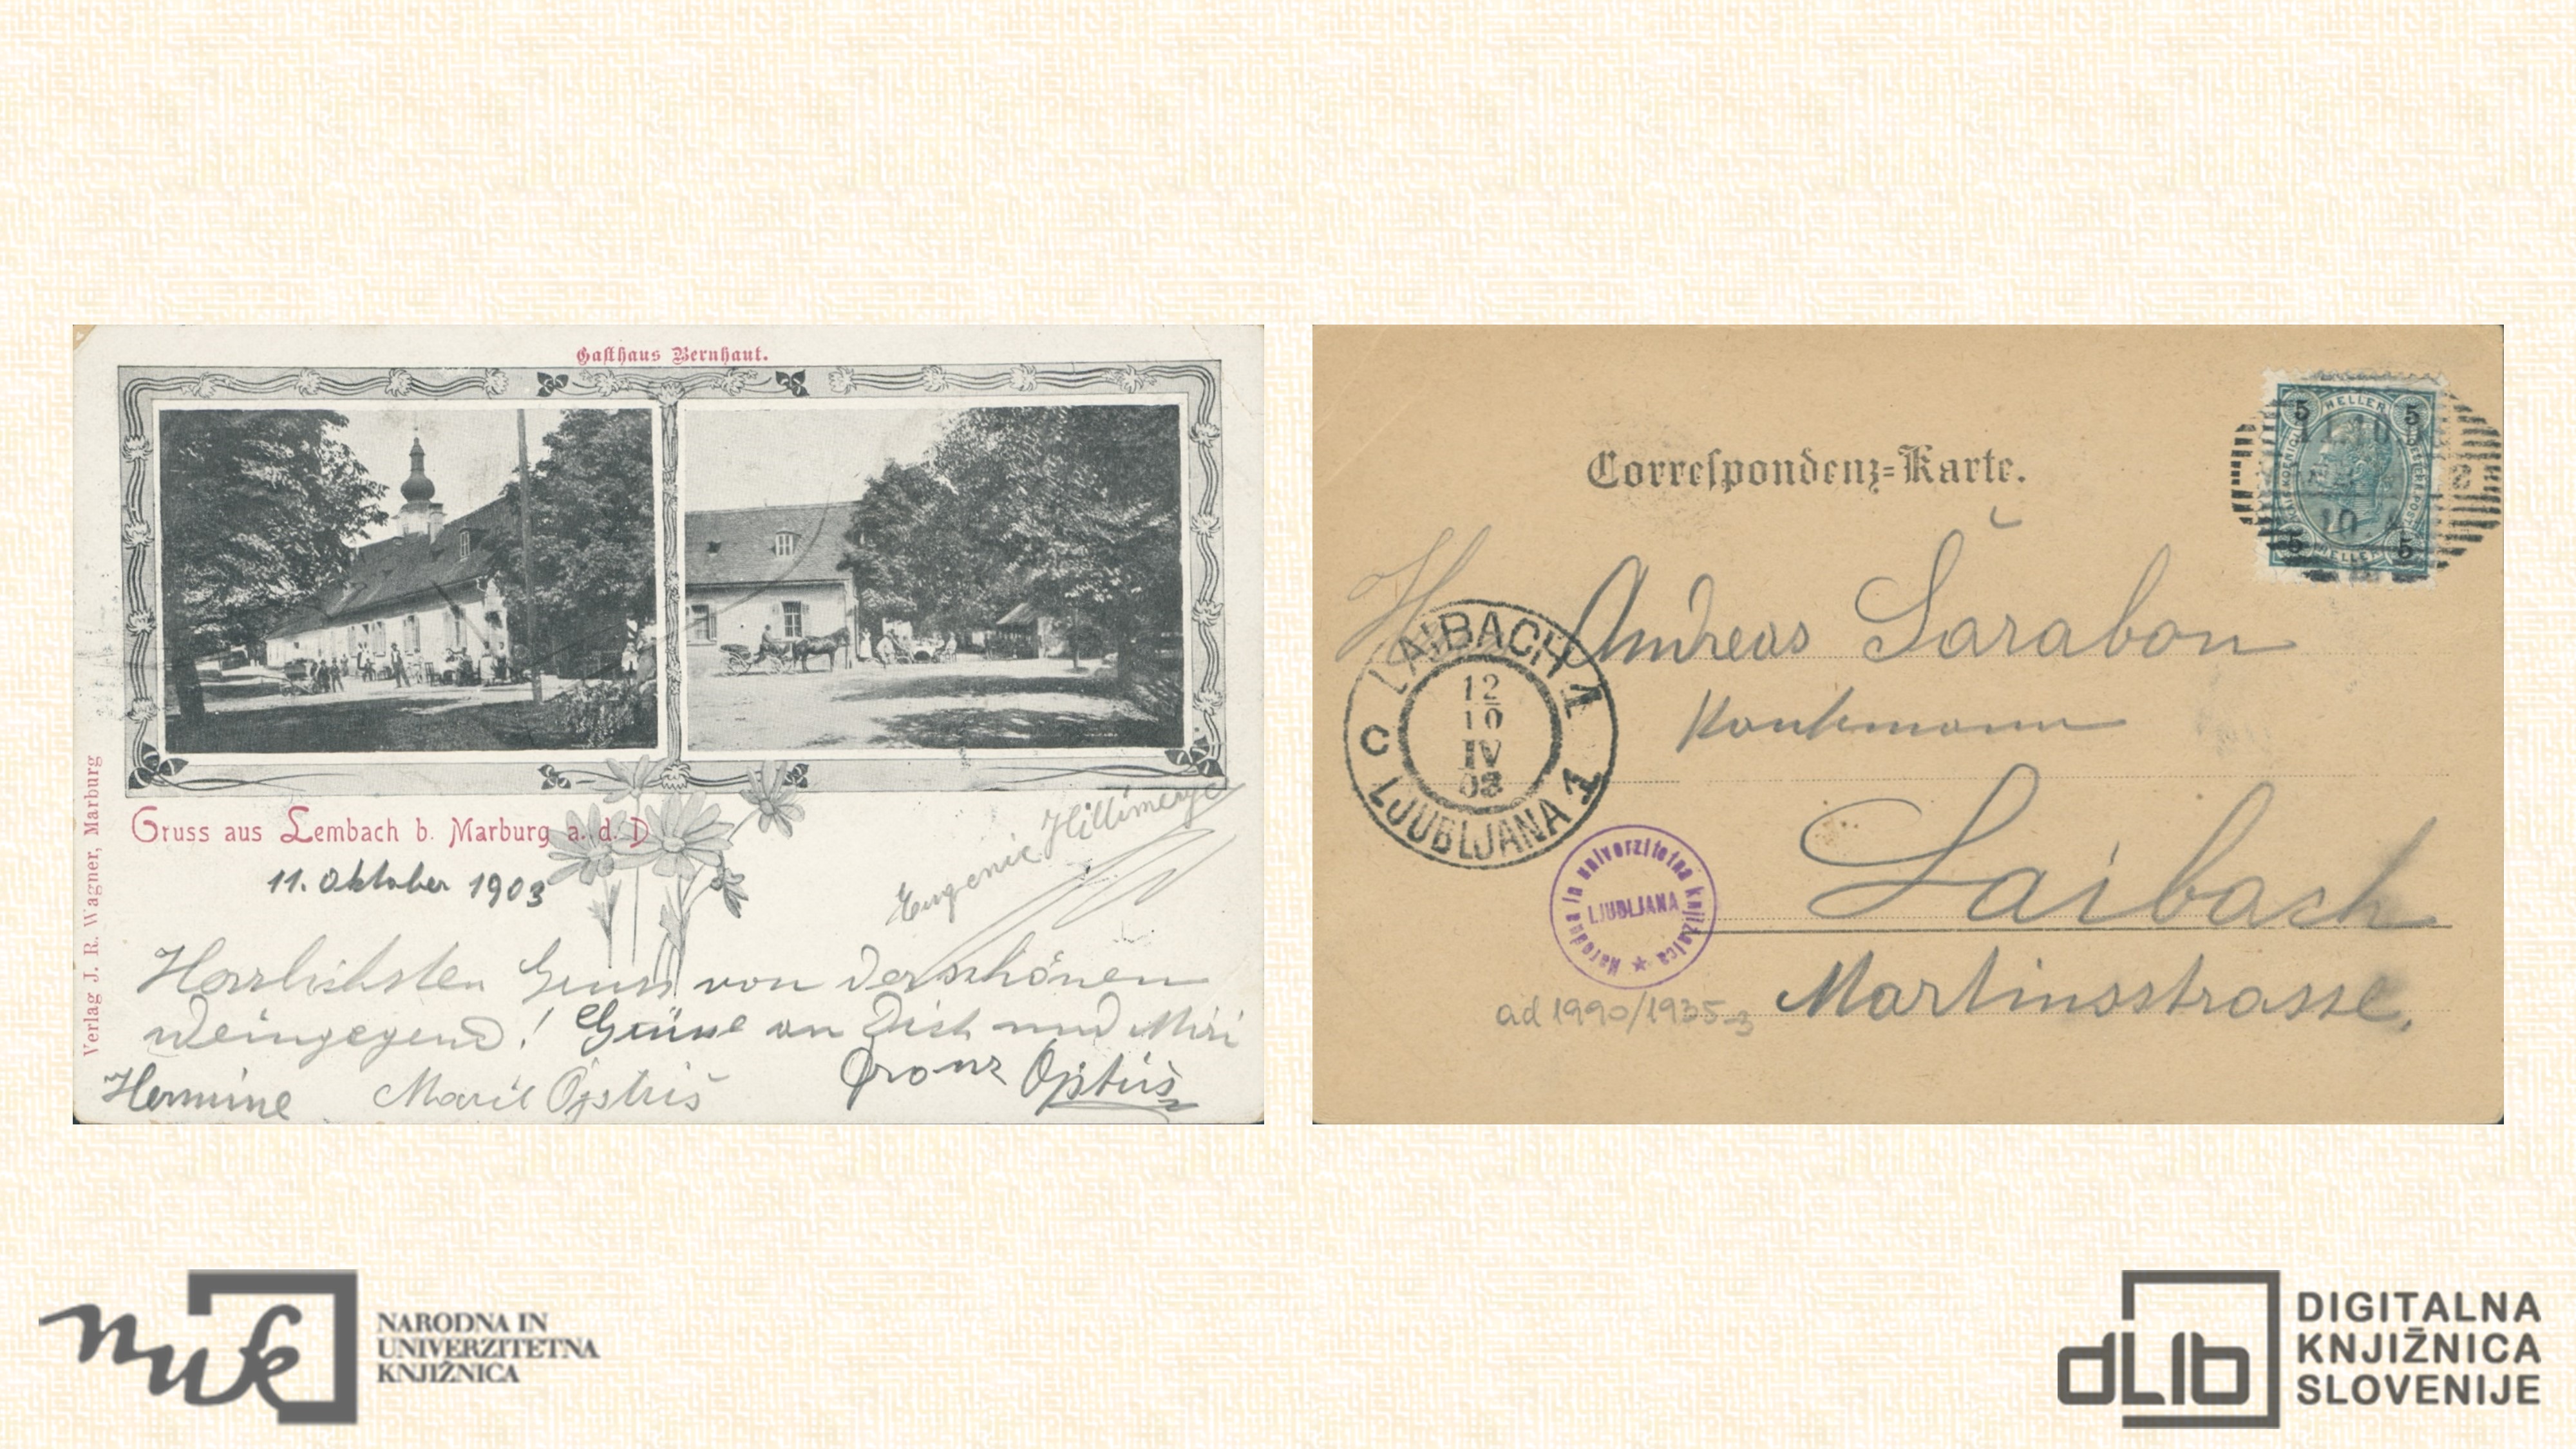 Gasthaus Bernhaut.
Gruss aus Lembach b. Marburg a. d. D
11. Oktober 1903
Eugenie
Herrlichsten Gruss von der schönen
Weingegend! Grüsse an Dich und Miri
Hermine
Franz
Verlag J. R. Wagner, Marburg
Correspondenz=Karte.
5 HELLER 5
5 HELLER 5
H Andreas Šarabon
Kaufmann
Laibach
Martinsstrasse.
LAIBACH 1
12
10
IV
03
C
LJUBLJANA 1
Narodna in univerzitetna knjižnica
LJUBLJANA
ad 1990/1935-3
nuk
NARODNA IN
UNIVERZITETNA
KNJIŽNICA
dLib
DIGITALNA
KNJIŽNICA
SLOVENIJE